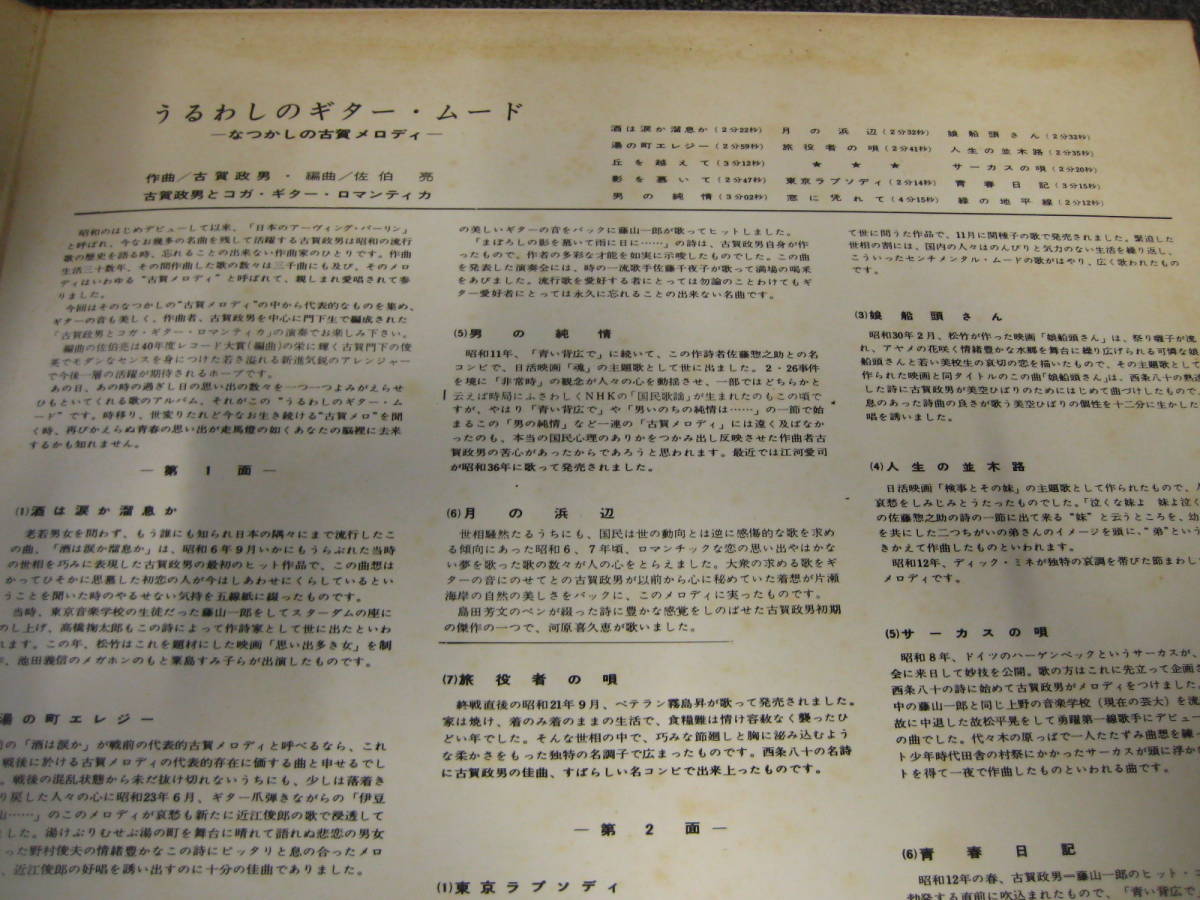 うるわしのギター・ムード
―なつかしの古賀メロディ―
作曲/古賀政男・編曲/佐伯 亮
古賀政男とコガ・ギター・ロマンティカ
酒は涙か溜息か(2分22秒) 月の浜辺(2分32秒) 娘船頭さん(2分32秒)
湯の町エレジー(2分59秒) 旅役者の唄(2分41秒) 人生の並木路(2分35秒)
丘を越えて(3分12秒) ★ ★ ★ サーカスの唄(2分20秒)
影を慕いて(2分47秒) 東京ラプソディ(2分14秒) 青春日記(3分15秒)
男の純情(3分02秒) 窓に凭れて(4分15秒) 緑の地平線(2分12秒)
昭和のはじめデビューして以来、「日本のアーヴィング・バーリン」
と呼ばれ、今なお幾多の名曲を残して活躍する古賀政男は昭和の流行
歌の歴史を語る時、忘れることの出来ない作曲家のひとりです。作曲
生活三十数年、その間作曲した歌の数々は三千曲にも及び、そのメロ
ディはいわゆる“古賀メロディ”と呼ばれて、親しまれ愛唱されて参
りました。
今回はそのなつかしの“古賀メロディ”の中から代表的なものを集め、
ギターの音も美しく、作曲者、古賀政男を中心に門下生で編成された
「古賀政男とコガ・ギター・ロマンティカ」の演奏でお楽しみ下さい。
編曲の佐伯亮は40年度レコード大賞(編曲)の栄に輝く古賀門下の俊
英でモダンなセンスを身につけた若さ溢れる新進気鋭のアレンジャー
で今後一層の活躍が期待されるホープです。
あの日、あの時の過ぎし日の思い出の数々を一つ一つよみがえらせ
ひもといてくれる歌のアルバム、それがこの“うるわしのギター・ム
ード”です。時移り、世変りたれど今なお生き続ける“古賀メロ”を聞
く時、再びかえらぬ青春の思い出が走馬燈の如くあなたの脳裡に去来
するかも知れません。
―第1面―
(1)酒は涙か溜息か
老若男女を問わず、もう誰にも知られ日本の隅々にまで流行したこ
の曲、「酒は涙か溜息か」は、昭和6年9月いかにもうらぶれた当時
の世相を巧みに表現した古賀政男の最初のヒット作品で、この曲想は
かってひそかに思慕した初恋の人が今はしあわせにくらしているとい
うことを聞いた時のやるせない気持を五線紙に綴ったものです。
当時、東京音楽学校の生徒だった藤山一郎をしてスターダムの座に
のし上げ、高橋掬太郎もこの詩によって作詩家として世に出たといわ
れます。この年、松竹はこれを題材にした映画「思い出多き女」を制
、池田義信のメガホンのもと栗島すみ子らが出演したものです。
湯の町エレジー
前の「酒は涙か」が戦前の代表的古賀メロディと呼べるなら、これ
戦後に於ける古賀メロディの代表的存在に価する曲と申せるでし
。戦後の混乱状態から未だ抜け切れないうちにも、少しは落着き
り戻した人々の心に昭和23年6月、ギター爪弾きながらの「伊豆
山……」のこのメロディが哀愁も新たに近江俊郎の歌で浸透して
した。湯けぶりむせぶ湯の町を舞台に晴れて語れぬ悲恋の男女
った野村俊夫の情緒豊かなこの詩にピッタリと息の合ったメロ
、近江俊郎の好唱を誘い出すのに十分の佳曲でありました。
の美しいギターの音をバックに藤山一郎が歌ってヒットしました。
「まぼろしの影を慕いて雨に日に……」の詩は、古賀政男自身が作
ったもので、作者の多彩な才能を如実に示唆したものでした。この曲
を発表した演奏会には、時の一流歌手佐藤千夜子が歌って満場の喝采
をあびました。流行歌を愛好する者にとっては勿論のことわけてもギ
ター愛好者にとっては永久に忘れることの出来ない名曲です。
(5)男の純情
昭和11年、「青い背広で」に続いて、この作詩者佐藤惣之助との名
コンビで、日活映画「魂」の主題歌として世に出ました。2・26事件
を境に“非常時”の観念が人々の心を動揺させ、一部ではどちらかと
云えば時局にふさわしくNHKの「国民歌謡」が生まれたのもこの頃で
すが、やはり「青い背広で」や「男いのちの純情は……」の一節で始
まるこの「男の純情」など一連の「古賀メロディ」には遠く及ばなか
ったのも、本当の国民心理のありかをつかみ出し反映させた作曲者古
賀政男の苦心があったからであろうと思われます。最近では江河愛司
が昭和36年に歌って発売されました。
(6)月の浜辺
世相騒然たるうちにも、国民は世の動向とは逆に感傷的な歌を求め
る傾向にあった昭和6、7年頃、ロマンチックな恋の思い出やはかな
い夢を歌った歌の数々が人の心をとらえました。大衆の求める歌をギ
ターの音にのせてとの古賀政男が以前から心に秘めていた着想が片瀬
海岸の自然の美しさをバックに、このメロディに実ったものです。
島田芳文のペンが綴った詩に豊かな感覚をしのばせた古賀政男初期
の傑作の一つで、河原喜久恵が歌いました。
(7)旅役者の唄
終戦直後の昭和21年9月、ベテラン霧島昇が歌って発売されました。
家は焼け、着のみ着のままの生活で、食糧難は情け容赦なく襲ったひ
どい年でした。そんな世相の中で、巧みな節廻しと胸に泌み込むよう
な柔かさをもった独特の名調子で広まったものです。西条八十の名詩
に古賀政男の佳曲、すばらしい名コンビで出来上ったものです。
―第2面―
(1)東京ラプソディ
て世に問うた作品で、11月に関種子の歌で発売されました。緊迫した
世相の割には、国内の人々はのんびりと気力のない生活を繰り返し、
こういったセンチメンタル・ムードの歌がはやり、広く歌われたもの
です。
(3)娘船頭さん
昭和30年2月、松竹が作った映画「娘船頭さん」は、祭り囃子が流
れ、アヤメの花咲く情緒豊かな水郷を舞台に繰り広げられる可憐な娘
船頭さんと若い美校生の哀切の恋を描いたもので、その主題歌として
作られた映画と同タイトルのこの曲「娘船頭さん」は、西条八十の熟達
した詩に古賀政男が美空ひばりのためにはじめて曲づけしたもので、
息のあった詩曲の良さが歌う美空ひばりの個性を十二分に生かした
唱を誘いました。
(4)人生の並木路
日活映画「検事とその妹」の主題歌として作られたもので、人
哀愁をしみじみとうたったものでした。「泣くな妹よ 妹よ泣く
の佐藤惣之助の詩の一節に出て来る“妹”と云うところを、幼
を共にした二つちがいの弟さんのイメージを頭に、“弟”という
きかえて作曲したものといわれます。
昭和12年、ディック・ミネが独特の哀調を帯びた節まわし
メロディです。
(5)サーカスの唄
昭和8年、ドイツのハーゲンベックというサーカスが、
会に来日して妙技を公開。歌の方はこれに先立って企画さ
西条八十の詩に始めて古賀政男がメロディをつけました。
中の藤山一郎と同じ上野の音楽学校(現在の芸大)を流
故に中退した故松平晃をして勇躍第一線歌手にデビュー
の曲でした。代々木の原っぱで一人たたずみ曲想を練っ
ト少年時代田舎の村祭にかかったサーカスが頭に浮か
トを得て一夜で作曲したものといわれる曲です。
(6)青春日記
昭和12年の春、古賀政男=藤山一郎のヒット・コ
勃発する直前に吹込まれたもので、「青い背広で